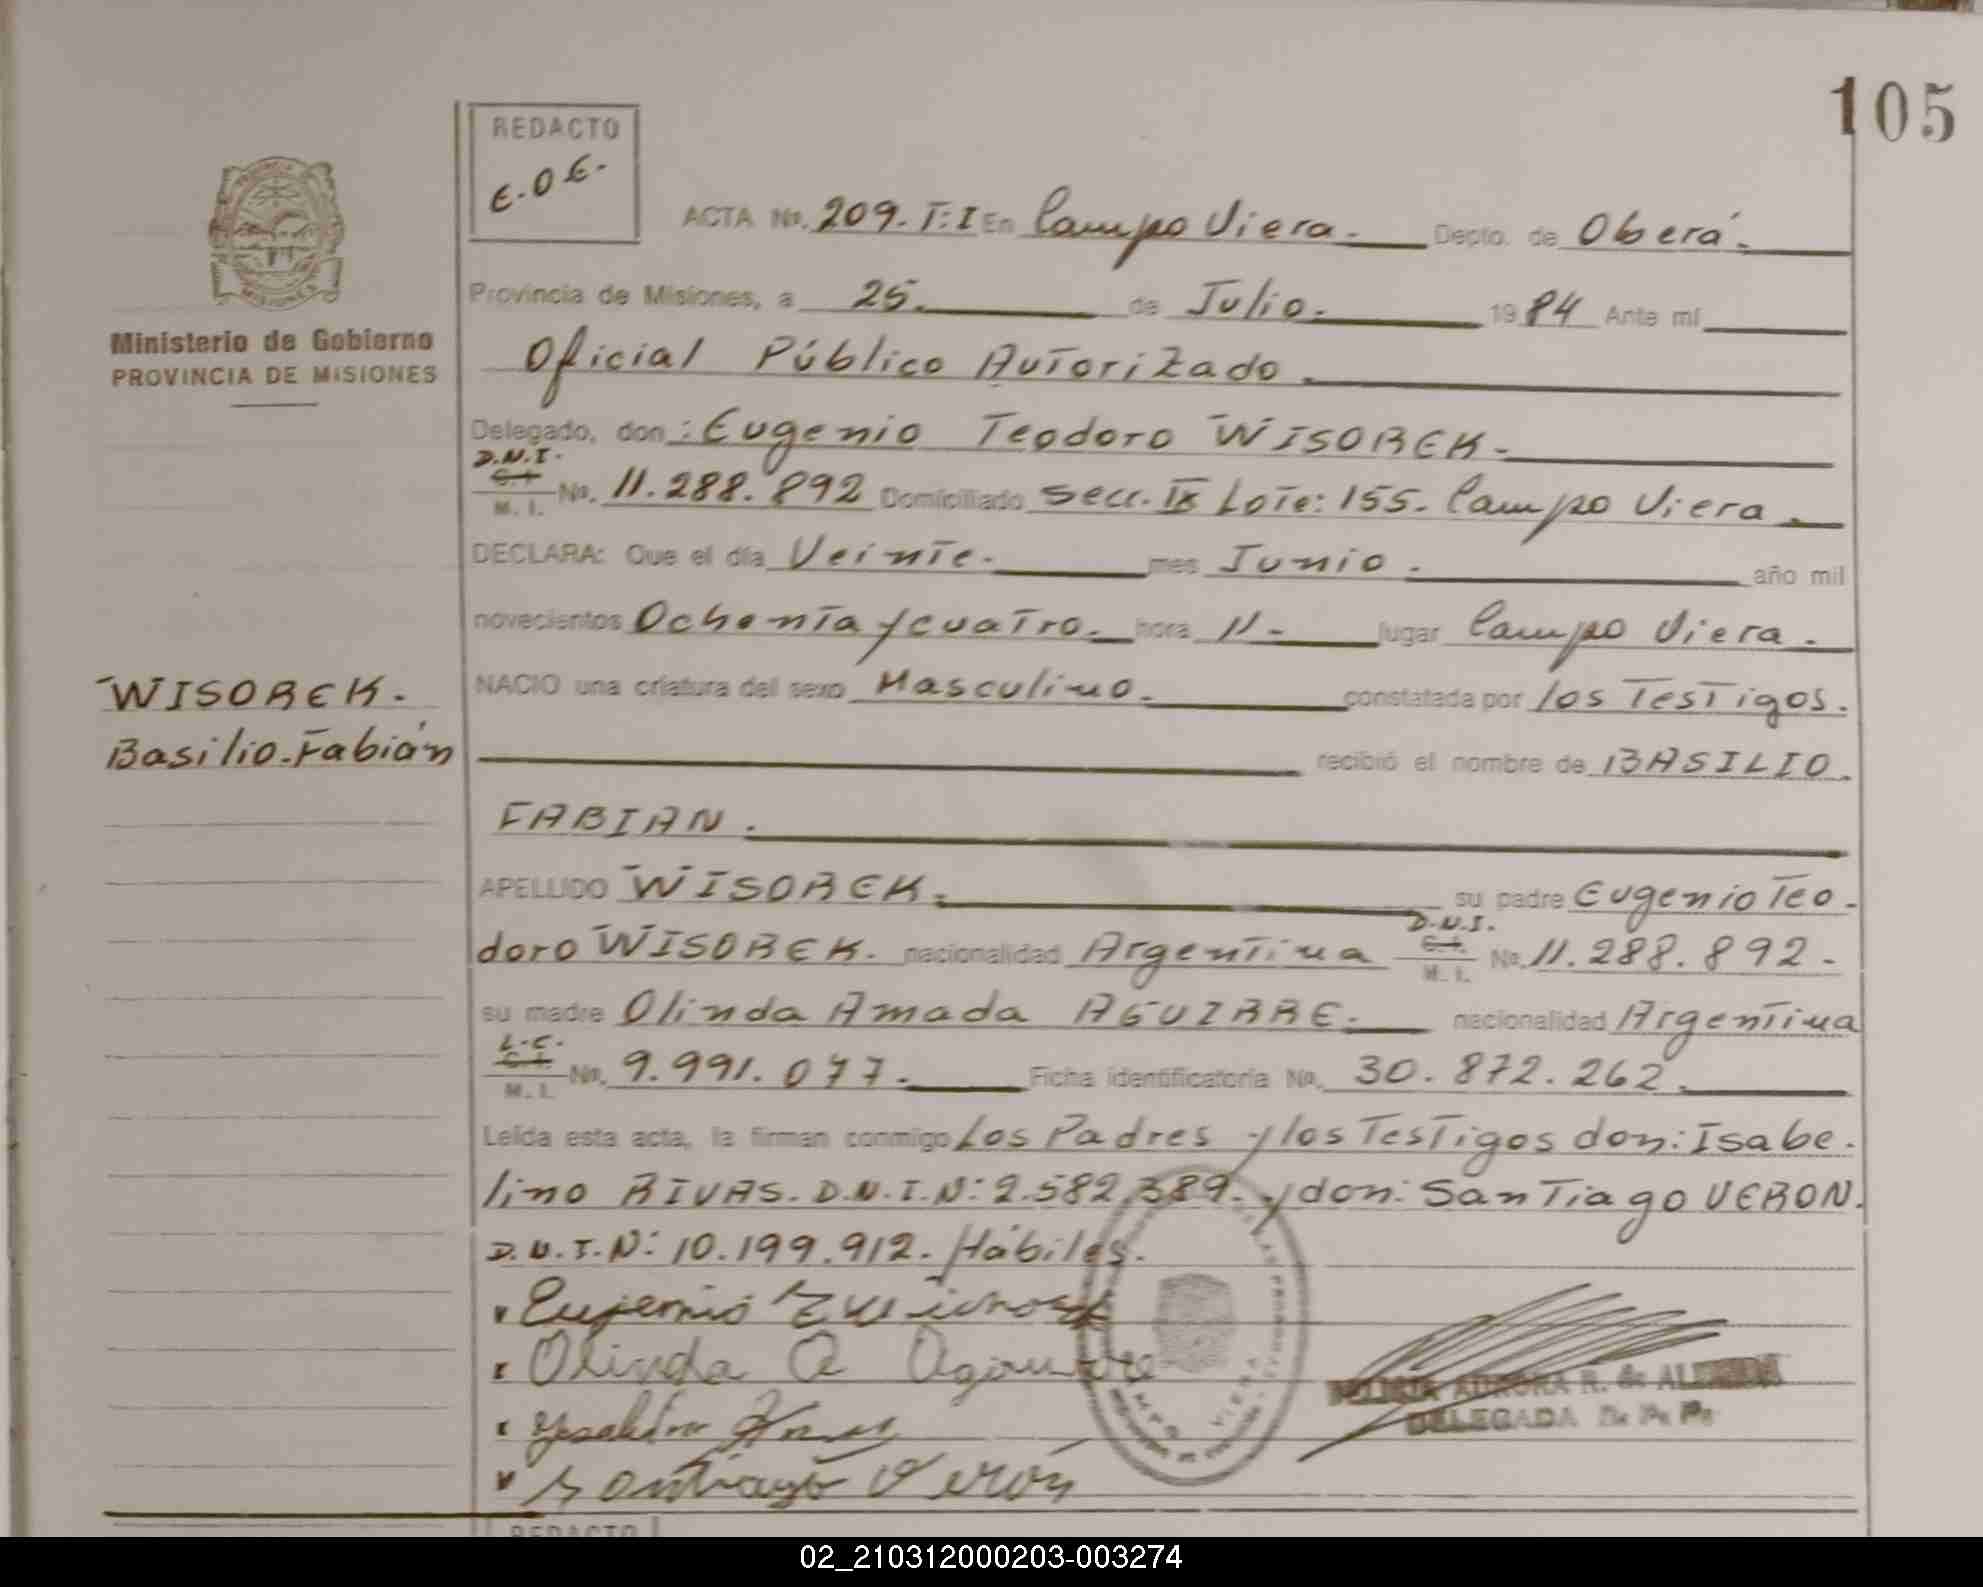 105
REDACTO
E.O.E.
ACTA No. 209. T: I En Campo Viera. Depto. de Oberá.
Provincia de Misiones, a 25. de Julio. 1984 Ante mí
Ministerio de Gobierno
PROVINCIA DE MISIONES
Oficial Público Autorizado.
Delegado, don: Eugenio Teodoro WISOREK.
D.N.I.
C.I.
M. I. No. 11.288.892 Domiciliado Secc. IX Lote: 155. Campo Viera.
DECLARA: Que el día Veinte. mes Junio. año mil
novecientos Ochenta y cuatro. hora 11. lugar Campo Viera.
WISOREK.
Basilio Fabián
NACIO una criatura del sexo Masculino. constatada por los Testigos.
recibió el nombre de BASILIO
FABIAN.
APELLIDO WISOREK. su padre Eugenio Teo-
doro WISOREK. nacionalidad Argentina D.N.I. C.I. M. I. No. 11.288.892.
su madre Olinda Amada AGUIRRE. nacionalidad Argentina
L.C.
C.I.
M. I. No. 9.991.077. Ficha identificatoria No. 30.872.262.
Leída esta acta, la firman conmigo Los Padres y los Testigos don: Isabe-
lino RIVAS. D.N.I. N: 2.582.389. y don: Santiago VERON.
D.N.I. N: 10.199.912. Hábiles.
Eugenio
Olinda A
Santiago Verón
AURORA R. de
DELEGADA
VIERA
REDACTO
02_210312000203-003274